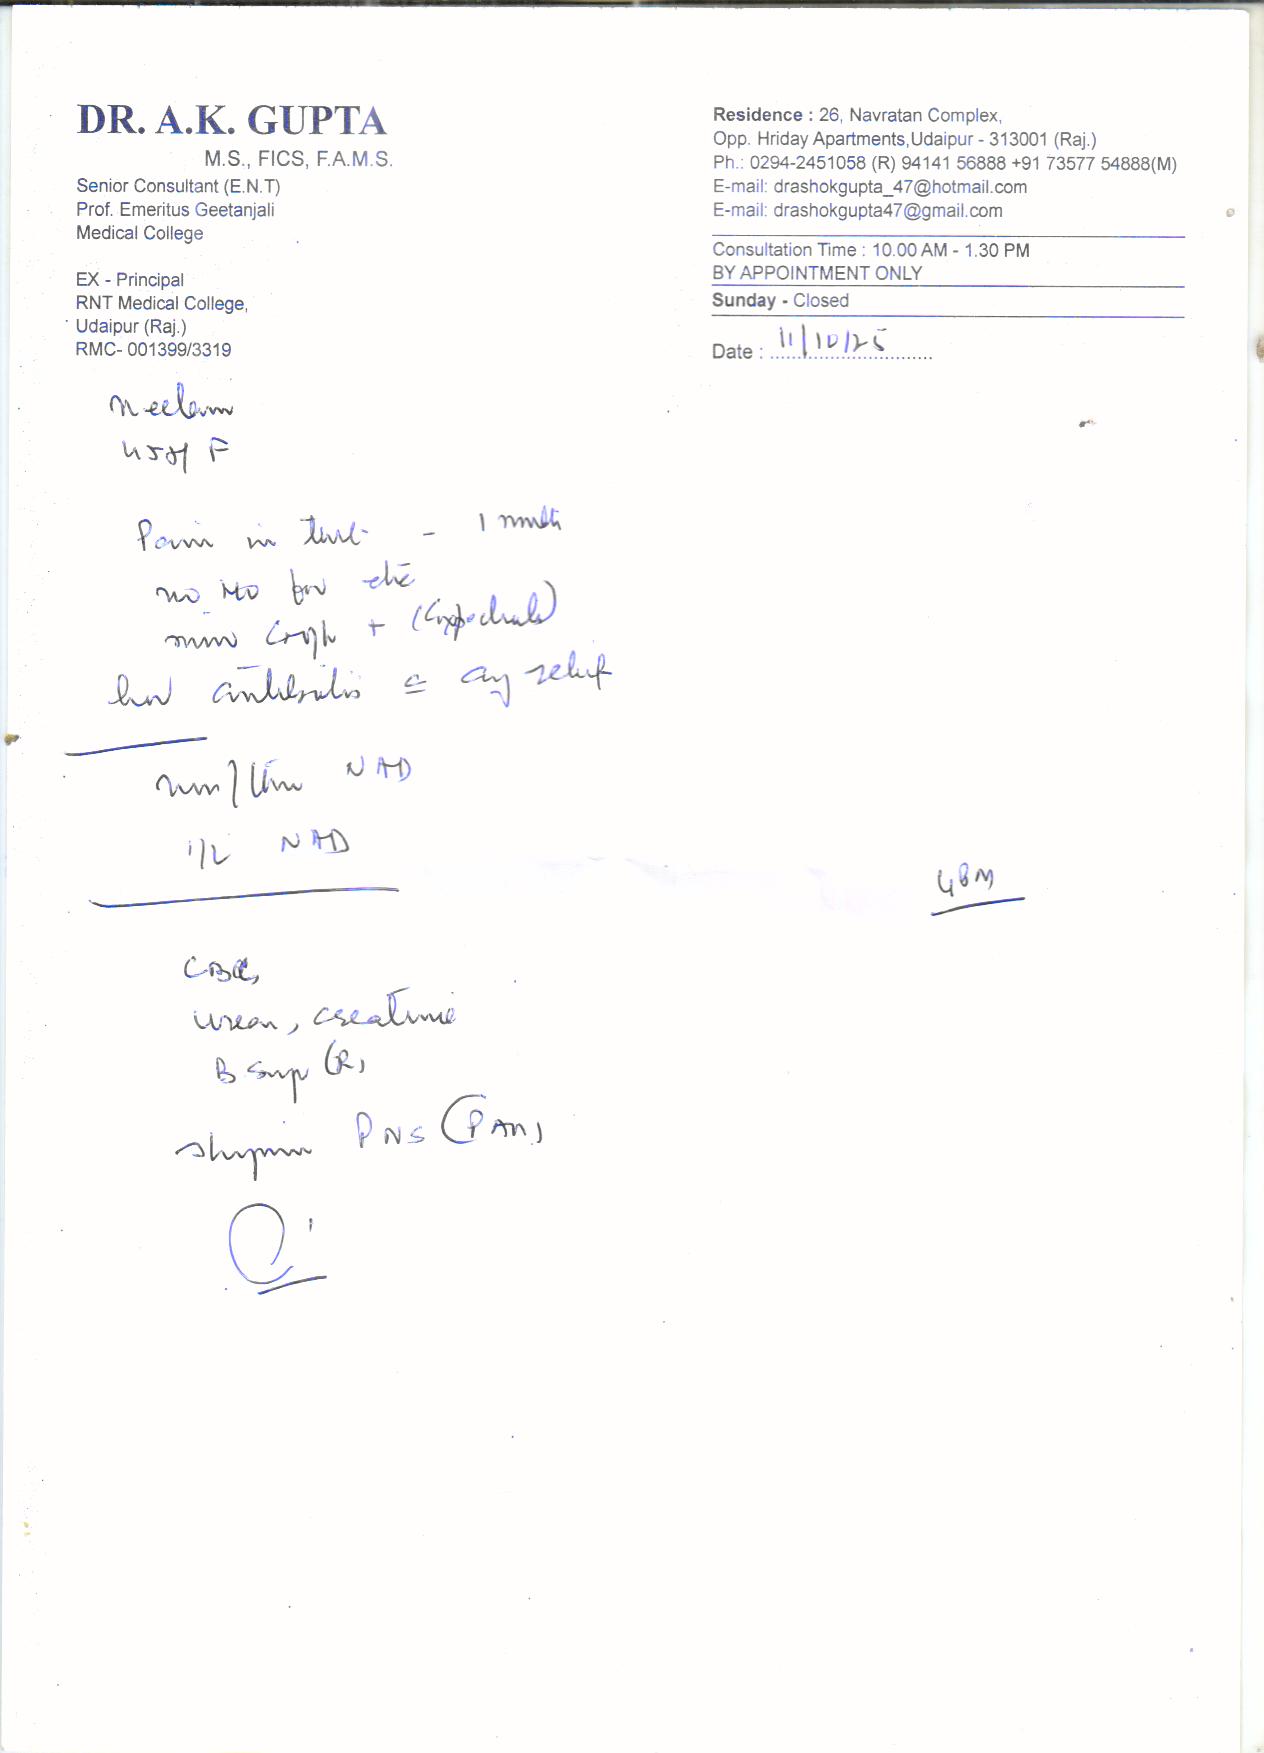 DR. A.K. GUPTA
M.S., FICS, F.A.M.S.
Senior Consultant (E.N.T)
Prof. Emeritus Geetanjali
Medical College
EX - Principal
RNT Medical College,
Udaipur (Raj.)
RMC- 001399/3319
Residence : 26, Navratan Complex,
Opp. Hriday Apartments,Udaipur - 313001 (Raj.)
Ph.: 0294-2451058 (R) 94141 56888 +91 73577 54888(M)
E-mail: drashokgupta_47@hotmail.com
E-mail: drashokgupta47@gmail.com
Consultation Time : 10.00 AM - 1.30 PM
BY APPOINTMENT ONLY
Sunday - Closed
Date : 11/10/25
Neelam
45y F
Pain in - 1 month
no
+
antibiotics relief
NAD
NAD
CBC,
urea, creatinine
B Sugar (R)
PNS (